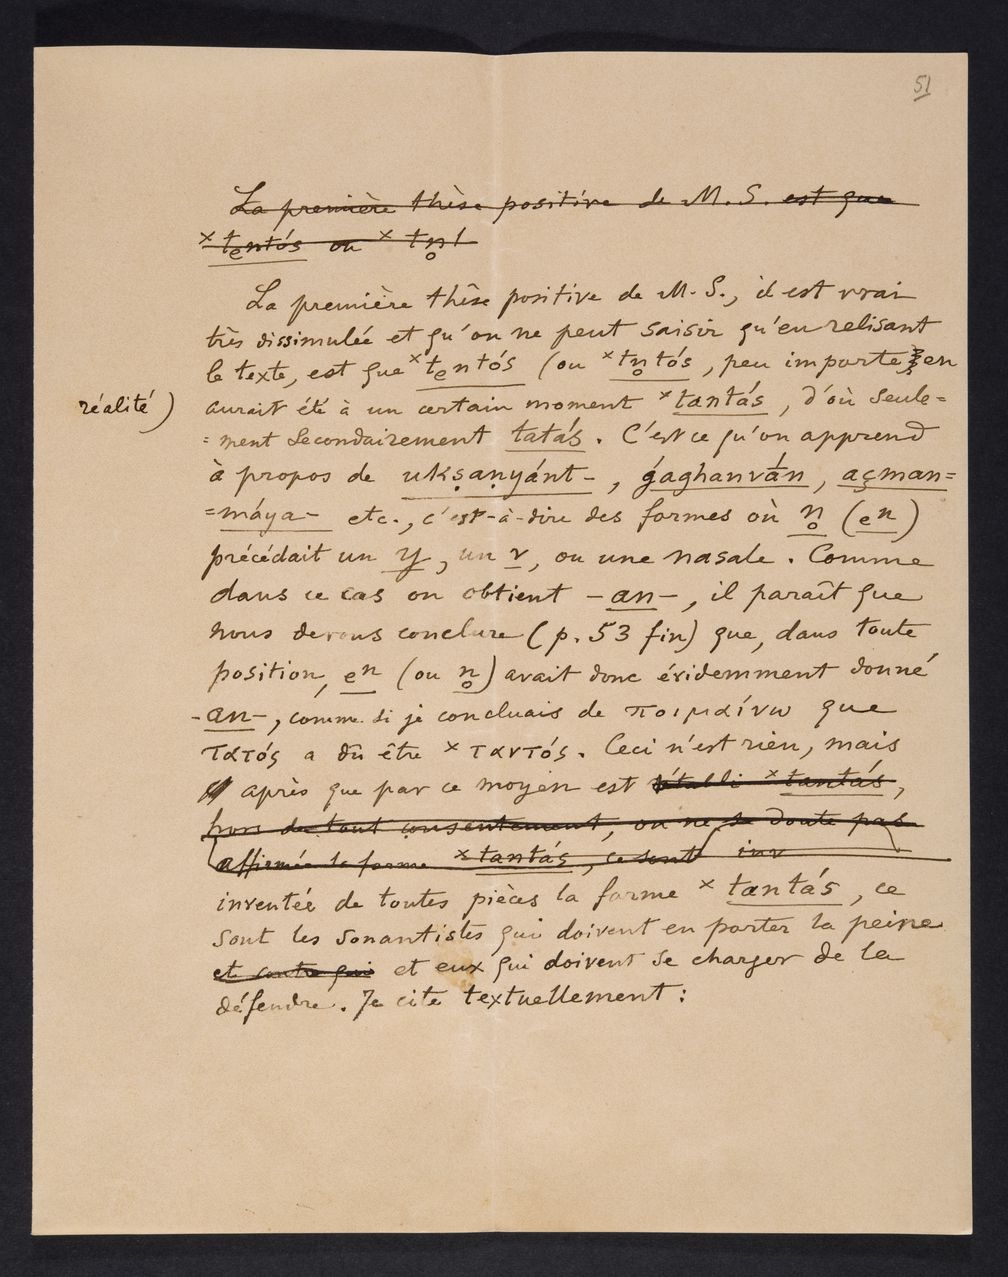 51
La première thèse positive de M. S. est que
ˣtₑntós ou ˣtn̥t
La première thèse positive de M. S., il est vrai
très dissimulée et qu'on ne peut saisir qu'en relisant
le texte, est que ˣtₑntós (ou ˣtn̥tós, peu importe en
réalité) aurait été à un certain moment ˣtantás, d'où seule=
=ment secondairement tatás. C'est ce qu'on apprend
à propos de ukṣaṇyánt-, ǵaghanvā́n, açman=
=máya- etc., c'est-à-dire des formes où n̥ (ₑn)
précédait un y, un v, ou une nasale. Comme
dans ce cas on obtient -an-, il paraît que
nous devons conclure (p. 53 fin) que, dans toute
position, ₑn (ou n̥) avait donc évidemment donné
-an-, comme si je concluais de ποιμαίνω que
τατός a dû être ˣταντός. Ceci n'est rien, mais
après que par ce moyen est rétabli ˣtantás,
hors de tout consentement, on ne se doute pas
affirmée la forme ˣtantás, ce sont inv
inventée de toutes pièces la forme ˣtantás, ce
sont les sonantistes qui doivent en porter la peine
et contre qui et eux qui doivent se charger de la
défendre. Je cite textuellement: